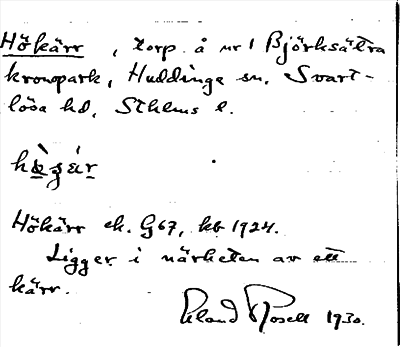 Hökärr, torp å nr 1 Björksätra
kronopark, Huddinge sn, Svart-
lösa hd, Sthlms l.
Hökärr ek. G67, kb 1924.
Ligger i närheten av ett
kärr.
Erland Rosell 1930.